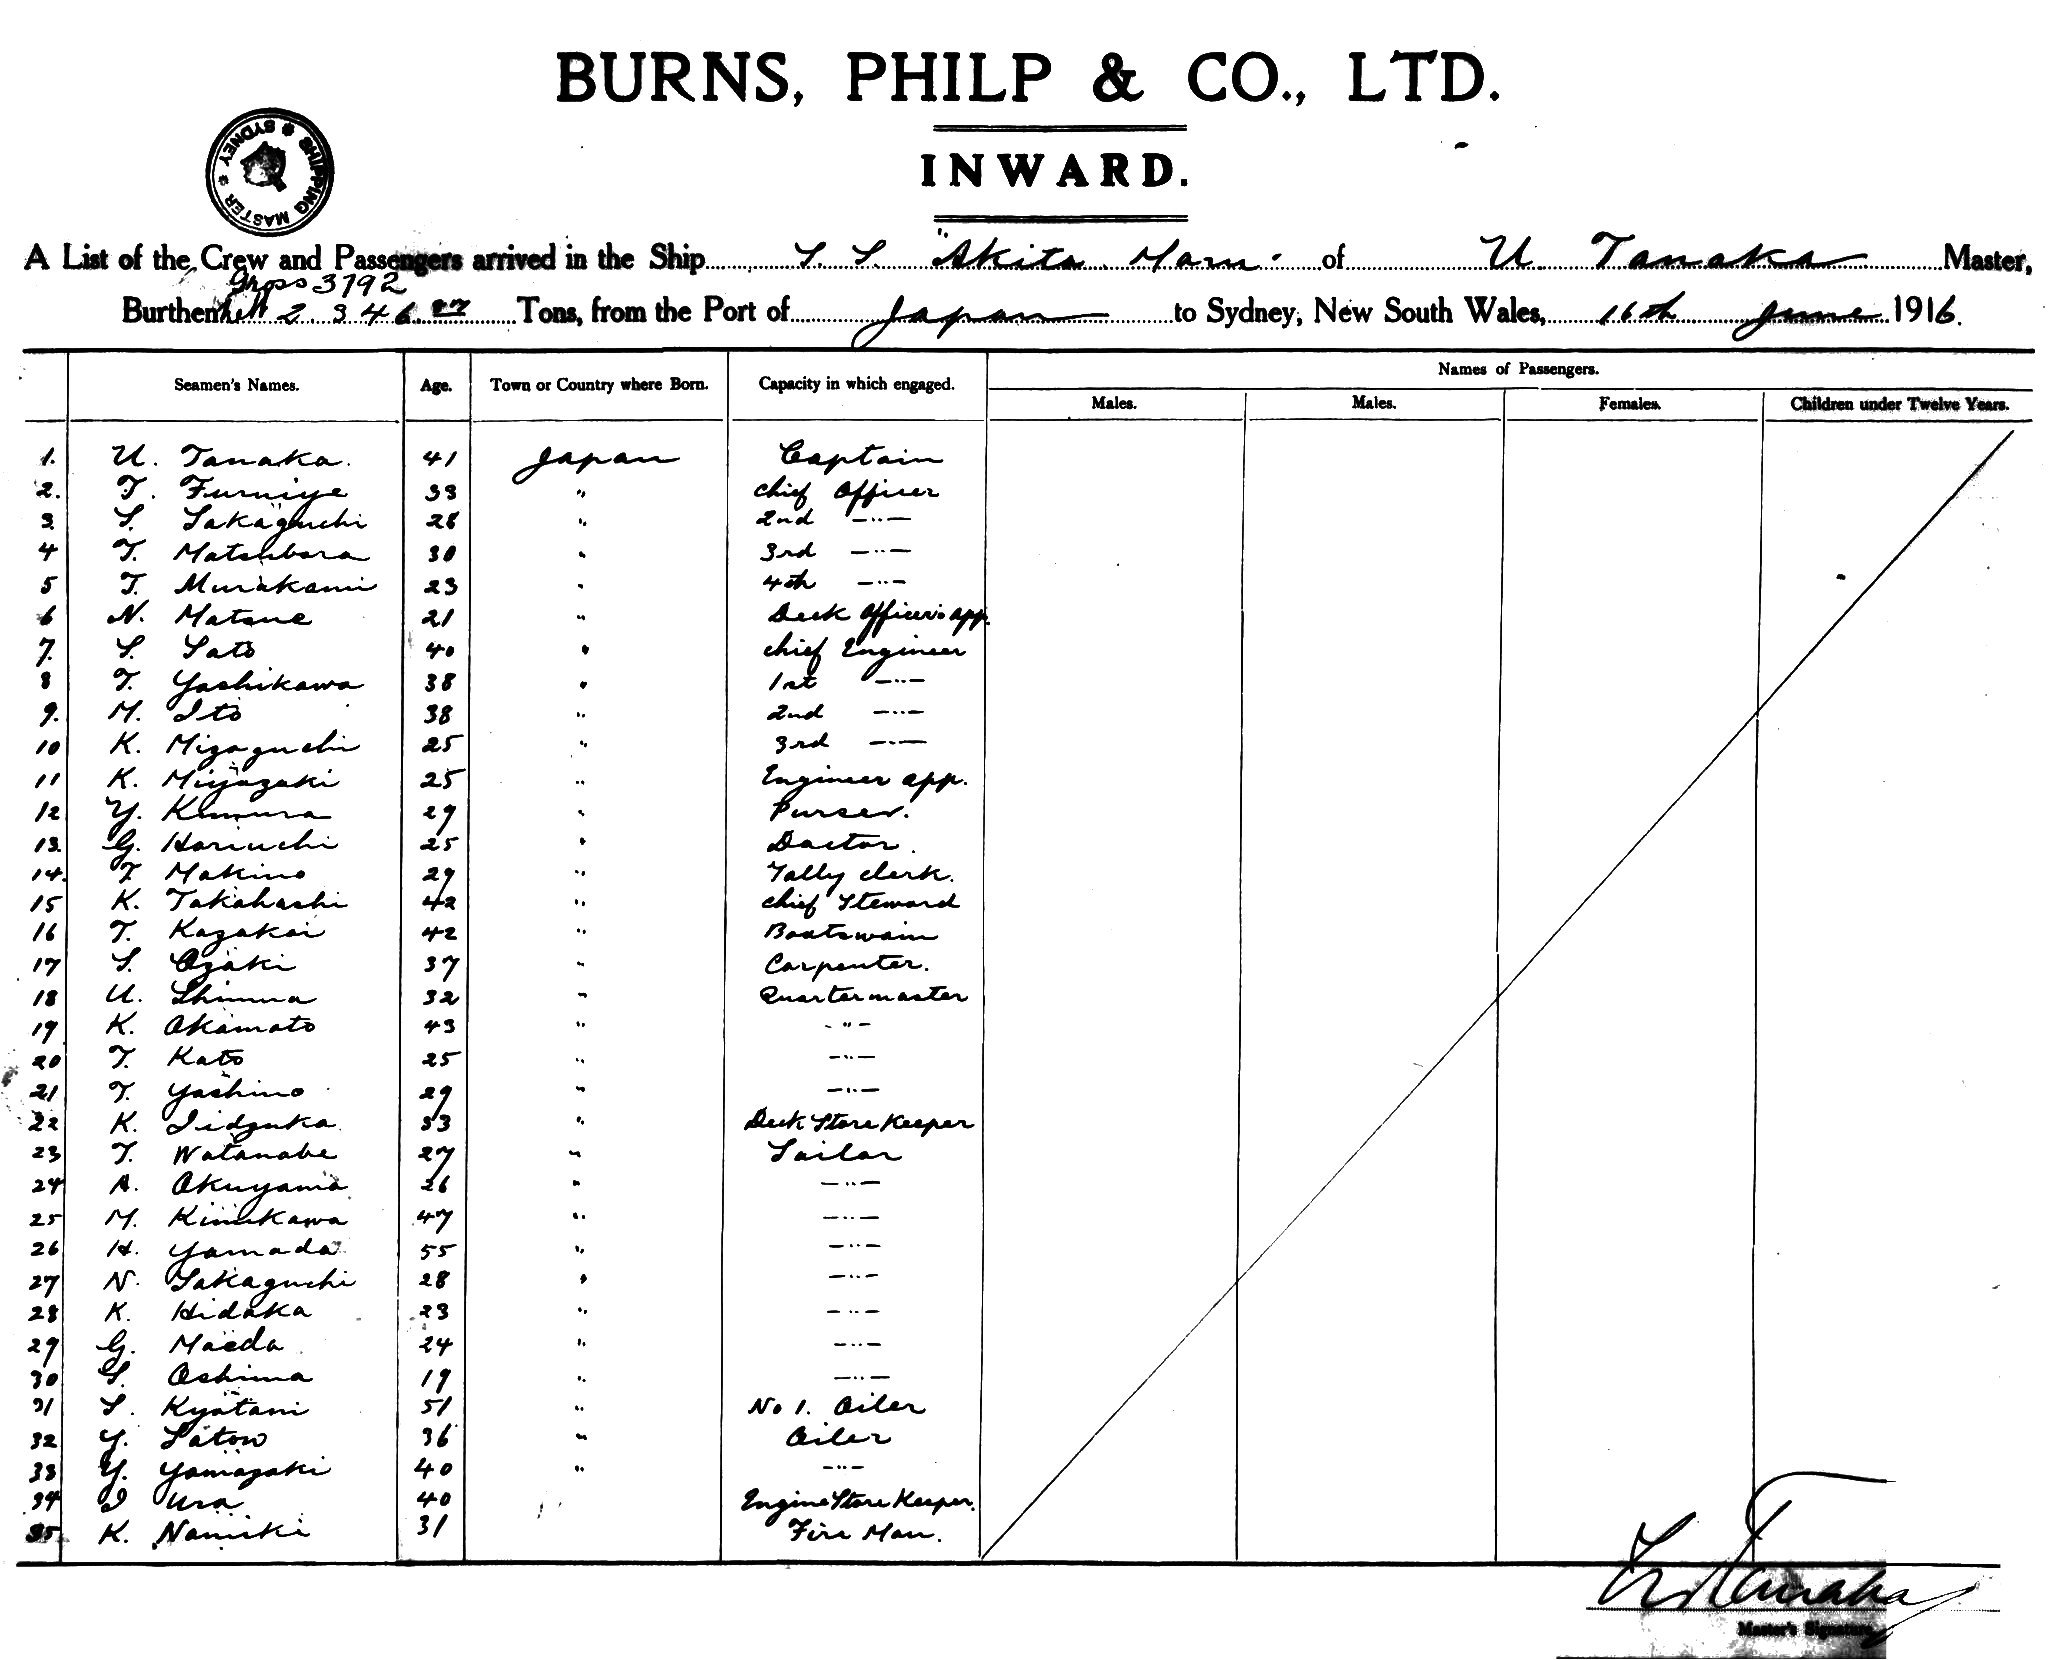 BURNS, PHILP & CO., LTD.
INWARD.
SHIPPING MASTER * SYDNEY *
A List of the Crew and Passengers arrived in the Ship S. S. "Akita Maru" of U. Tanaka Master,
Gross 3792
Burthen Nett 2346.87 Tons, from the Port of Japan to Sydney, New South Wales, 16th June 1916.
Names of Passengers.
Seamen's Names. Age. Town or Country where Born. Capacity in which engaged. Males. Males. Females. Children under Twelve Years.
1. U. Tanaka. 41 Japan Captain
2. T. Furuiye 33 " Chief Officer
3. S. Sakaguchi 28 " 2nd —"—
4 T. Matsubara 30 " 3rd —"—
5 T. Murakami 23 " 4th —"—
6 N. Matsue 21 " Deck Officer's app.
7. S. Sato 40 " Chief Engineer
8 T. Yoshikawa 38 " 1st —"—
9. M. Ito 38 " 2nd —"—
10 K. Mizoguchi 25 " 3rd —"—
11 K. Miyazaki 25 " Engineer app.
12 Y. Kimura 29 " Purser.
13. G. Horiuchi 25 " Doctor.
14. T. Makino 29 " Tally clerk.
15 K. Takahashi 42 " Chief Steward
16 T. Kazakai 42 " Boatswain
17 S. Ozaki 37 " Carpenter.
18 U. 32 " Quartermaster
19 K. Okamoto 43 " —"—
20 T. Kato 25 " —"—
21 T. Yoshino 29 " —"—
22 K. Iidzuka 33 " Deck Store Keeper
23 T. Watanabe 27 " Sailor
24 A. Okuyama 26 " —"—
25 M. Kinukawa 47 " —"—
26 H. Yamada 55 " —"—
27 N. Sakaguchi 28 " —"—
28 K. Hidaka 23 " —"—
29 G. Maeda 24 " —"—
30 S. Oshima 19 " —"—
31 S. Kyotani 51 " No 1. Oiler
32 Y. Satow 36 " Oiler
33 Y. Yamazaki 40 " —"—
34 I Ura 40 " Engine Store Keeper.
35. K. Namiki 31 Fire Man.
U. Tanaka
Master's Signature.